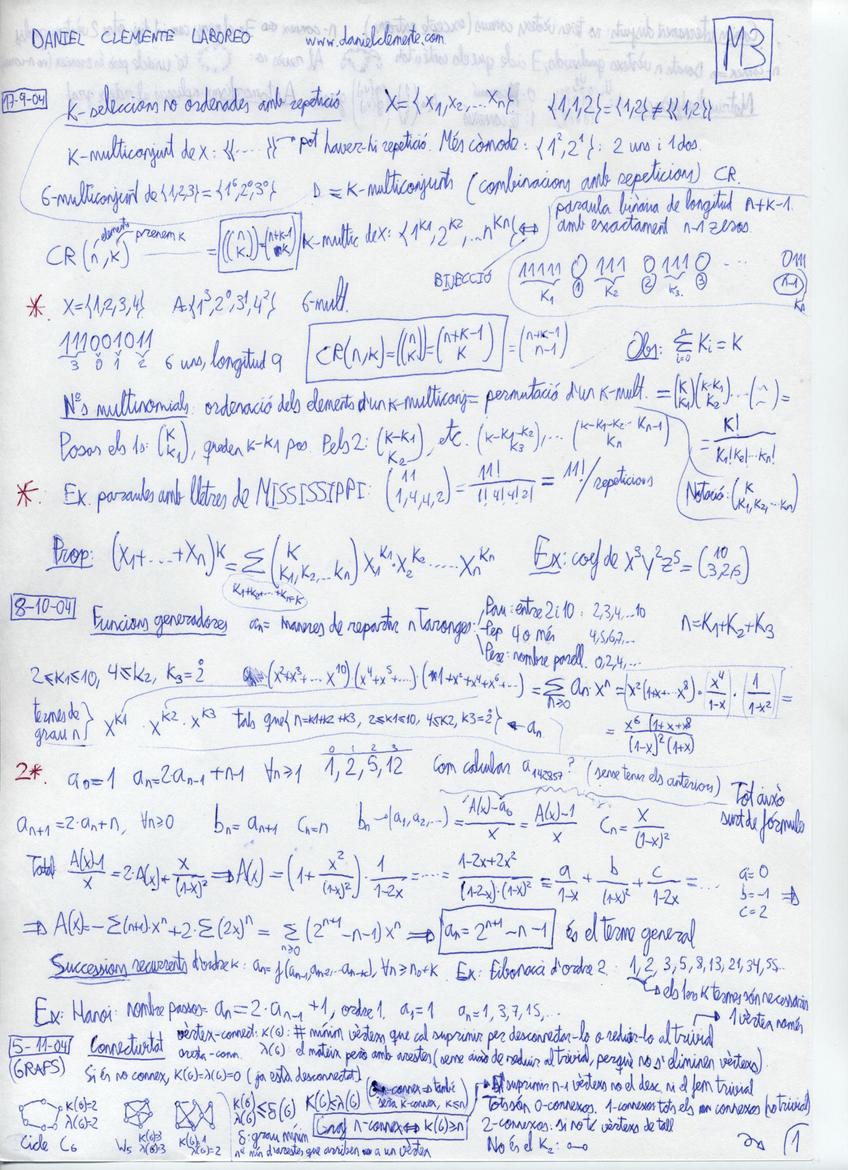 DANIEL CLEMENTE LABOREO www.danielclemente.com M3
17-9-04 K-seleccions no ordenades amb repetició X={x₁,x₂,...xₙ} {1,1,2}={1,2}≠{{1,1,2}}
K-multiconjunt de X: {{......}} → pot haver-hi repetició. Més còmode: {1²,2¹}: 2 uns i 1 dos.
6-multiconjunt de {1,2,3}={1⁶,2⁰,3⁰} K-multiconjunts (combinacions amb repeticions) CR.
CR(n,k) elements prenem k = ((n k))=(n+k-1 k) K-multic de X: {1^K1,2^K2,...n^Kn} ⇔ paraula binària de longitud n+k-1 amb exactament n-1 zeros.
BIJECCIÓ 11111 0 111 0 111 0 ... 0111
K₁ ① K₂ ② K₃ ③ n-1 Kn
* X={1,2,3,4} A={1³,2⁰,3¹,4²} 6-mult.
111001011 6 uns, longitud 9 CR(n,k)=((n k))=(n+k-1 k)=(n+k-1 n-1) Obs: Σ Ki=K
3 0 1 2
Nºs multinomials: ordenació dels elements d'un k-multiconj= permutació d'un k-mult. =(K K₁)(K-K₁ K₂)...(...)=
Posar els 1s: (K K₁), queden k-k₁ pos. Pels 2: (K-K₁ K₂), etc. (K-K₁-K₂ K₃),... (K-K₁-K₂...Kn-1 Kn) = K!/(K₁!K₂!...Kn!)
* Ex. paraules amb lletres de MISSISSIPPI: (11 1,4,4,2)=11!/(1!4!4!2!)=11!/repeticions Notació: (K K₁,K₂,...Kn)
Prop: (X₁+...+Xn)^K = Σ (K K₁,K₂,...Kn) X₁^K1·X₂^K2.....Xn^Kn Ex: coef de x³y²z⁵=(10 3,2,5)
K₁+K₂+...+Kn=K
8-10-04 Funcions generadores an= maneres de repartir n taronges: Pau: entre 2 i 10: 2,3,4,...10 n=K₁+K₂+K₃
Pep 4 o més 4,5,6,7,...
Pere: nombre parell 0,2,4,...
2≤K₁≤10, 4≤K₂, K₃=2̇ (x²+x³+...x¹⁰)(x⁴+x⁵+...)·(1+x²+x⁴+x⁶+...)=Σ n≥0 an·xⁿ=x²(1+x+...x⁸)·x⁴/(1-x)·1/(1-x²)=
termes de grau n} x^K1·x^K2·x^K3 tals que {n=k1+k2+k3, 2≤k1≤10, 4≤k2, k3=2̇} ← an = x⁶(1+x+x⁸)/((1-x)²(1+x))
2*. a₀=1 an=2an-1+n-1 ∀n≥1 1,2,5,12 Com calcular a₁₄₂₈₅₇? (sense tenir els anteriors)
0 1 2 3
an+1=2·an+n, ∀n≥0 bn=an+1 cn=n bn→(a₁,a₂,...)=(A(x)-a₀)/x=(A(x)-1)/x Cn=x/(1-x)² Tot això surt de fórmules
Total (A(x)-1)/x=2·A(x)+x/(1-x)² ⇒ A(x)=(1+x²/(1-x)²)·1/(1-2x)=....=(1-2x+2x²)/((1-2x)·(1-x)²)=a/(1-x)+b/(1-x)²+c/(1-2x)=... a=0 b=-1 c=2 ⇒
⇒ A(x)=-Σ(n+1)·xⁿ+2·Σ(2x)ⁿ = Σ n≥0 (2ⁿ⁺¹-n-1)xⁿ ⇒ an=2ⁿ⁺¹-n-1 és el terme general
Successions recurrents d'ordre k: an=f(an-1,an-2,...an-k), ∀n≥n₀+k. Ex: Fibonacci d'ordre 2: 1,2,3,5,8,13,21,34,55...
→ els 1ers K termes són necessaris
Ex: Hanoi: nombre passos= an=2·an-1+1, ordre 1. a₁=1 an=1,3,7,15,... 1 vèrtex només
5-11-04 (GRAFS) Connectivitat vèrtex-connect: K(G): # mínim vèrtexs que cal suprimir per desconnectar-lo o reduir-lo al trivial
aresta-conn. λ(G) el mateix però amb arestes (sense això de reduir al trivial, perquè no s'eliminen vèrtexs).
Si és no connex, K(G)=λ(G)=0 (ja està desconnectat) n-connex⇒també serà k-connex, k≤n suprimir n-1 vèrtexs no el desc. ni el fem trivial
K(G)=2 λ(G)=2 K(G)=3 λ(G)=3 K(G)=1 λ(G)=2 K(G)≤δ(G) λ(G) K(G)≤λ(G) Tots són 0-connexos. 1-connexos tots els connexos (no trivial)
δ: grau mínim Graf n-connex⇔K(G)≥n 2-connexos: si no té vèrtexs de tall
Cicle C₆ W₅ nº mín d'arestes que arriben a un vèrtex No és el K₂: o-o 1